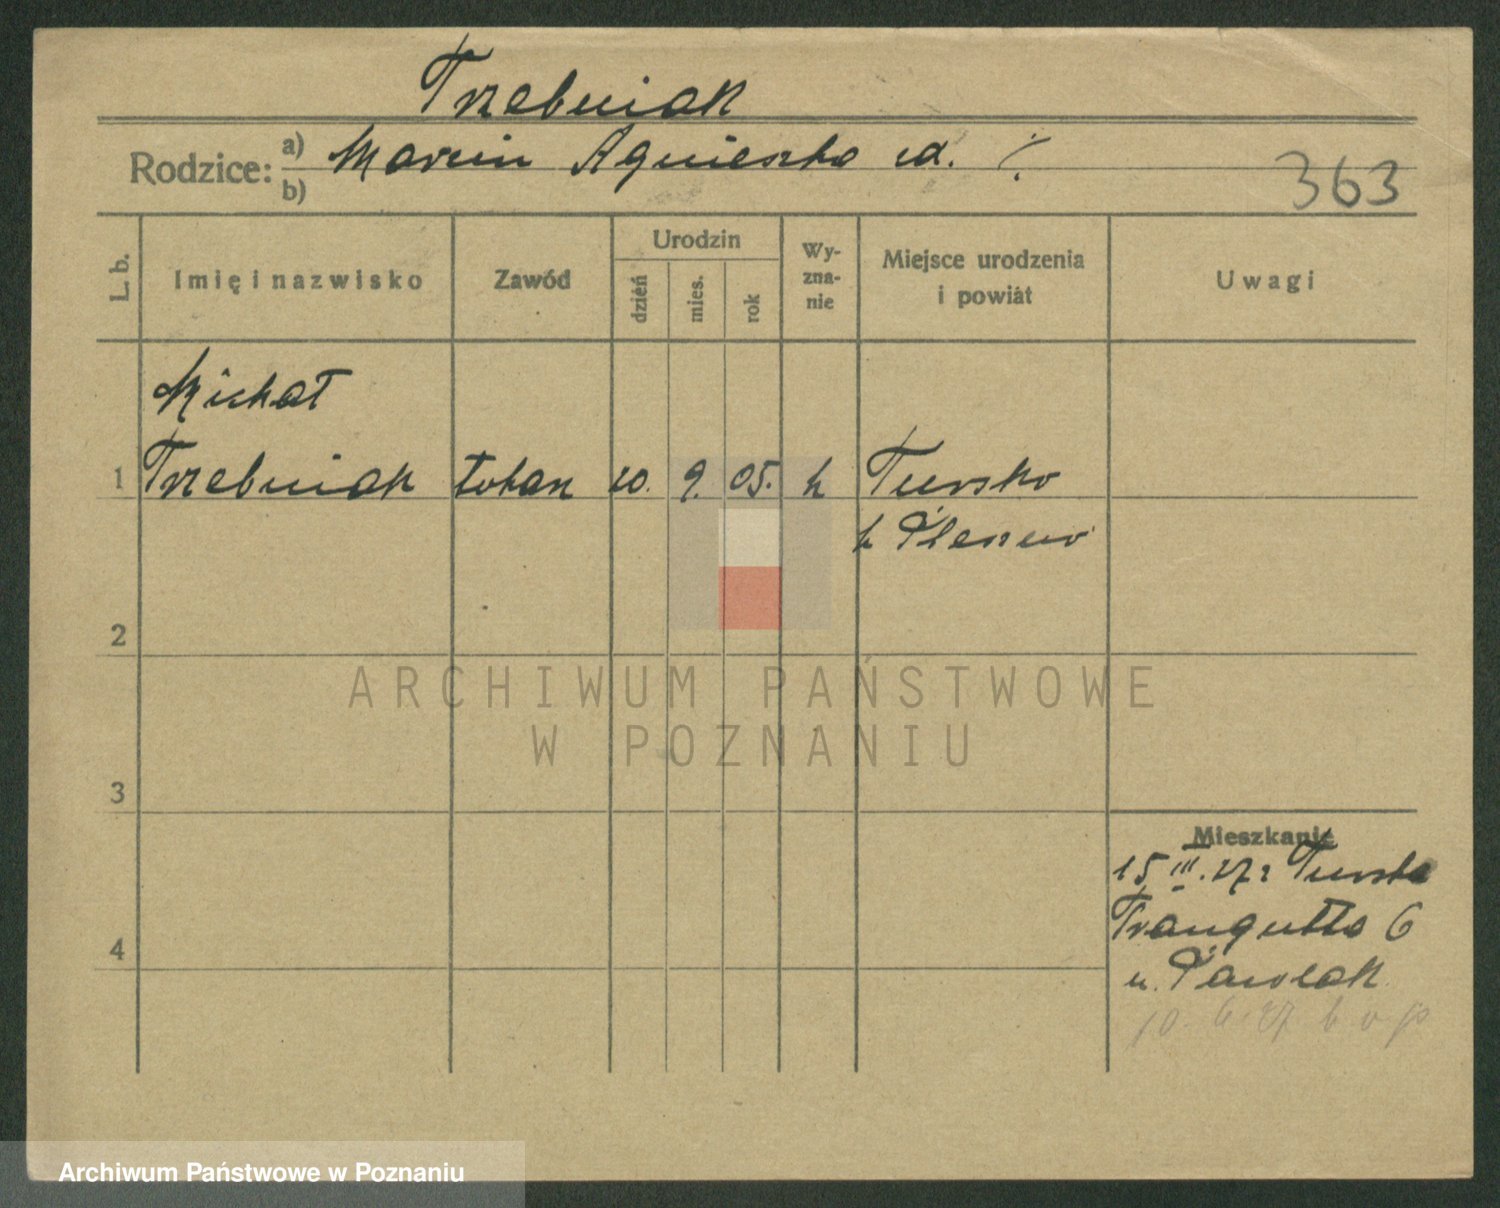 Trzebniak
Rodzice: a) Marcin Agnieszka
b)
363
L. b. Imię i nazwisko Zawód Urodzin dzień mies. rok Wy-zna-nie Miejsce urodzenia i powiat Uwagi
Michał
1 Trzebniak tokarz 20. 9. 05. k Tursko
p Pleszew
2
ARCHIWUM PAŃSTWOWE
W POZNANIU
3
Mieszkanie
15 III. 27 z Turska
Traugutta 6
4
u. Pawlak
10. 6. 27
Archiwum Państwowe w Poznaniu